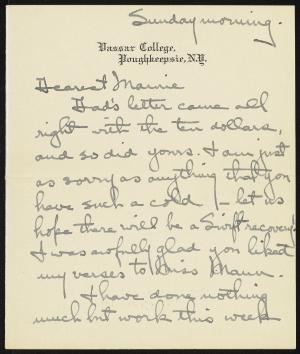 Sunday morning.
Vassar College,
Poughkeepsie, N.Y.
Dearest Mamie
Dad's letter came all
right with the ten dollars,
and so did yours. I am just
as sorry as anything that you
have such a cold - let us
hope there will be a swift recovery!
I was awfully glad you liked
my verses to Miss
I have done nothing
much but work this week